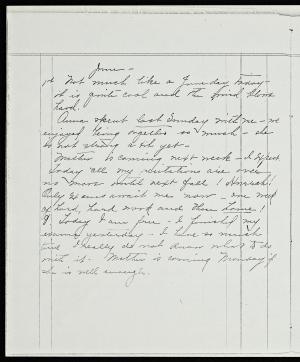 June -
1st Not much like a June day today -
it is quite cool and the wind blows
hard.
Anna spent last Sunday with me - we
enjoyed being together so much - she
is not strong tho yet -
Mother is coming next week - I expect
Today all my recitations are over
no more until next fall! Hurrah!
Only exams await me now - one week
of hard, hard work and then home!
8. Today I am free - I finished my
exams yesterday - I have so much
time I really do not know what to do
with it. Mother is coming Monday if
she is well enough.